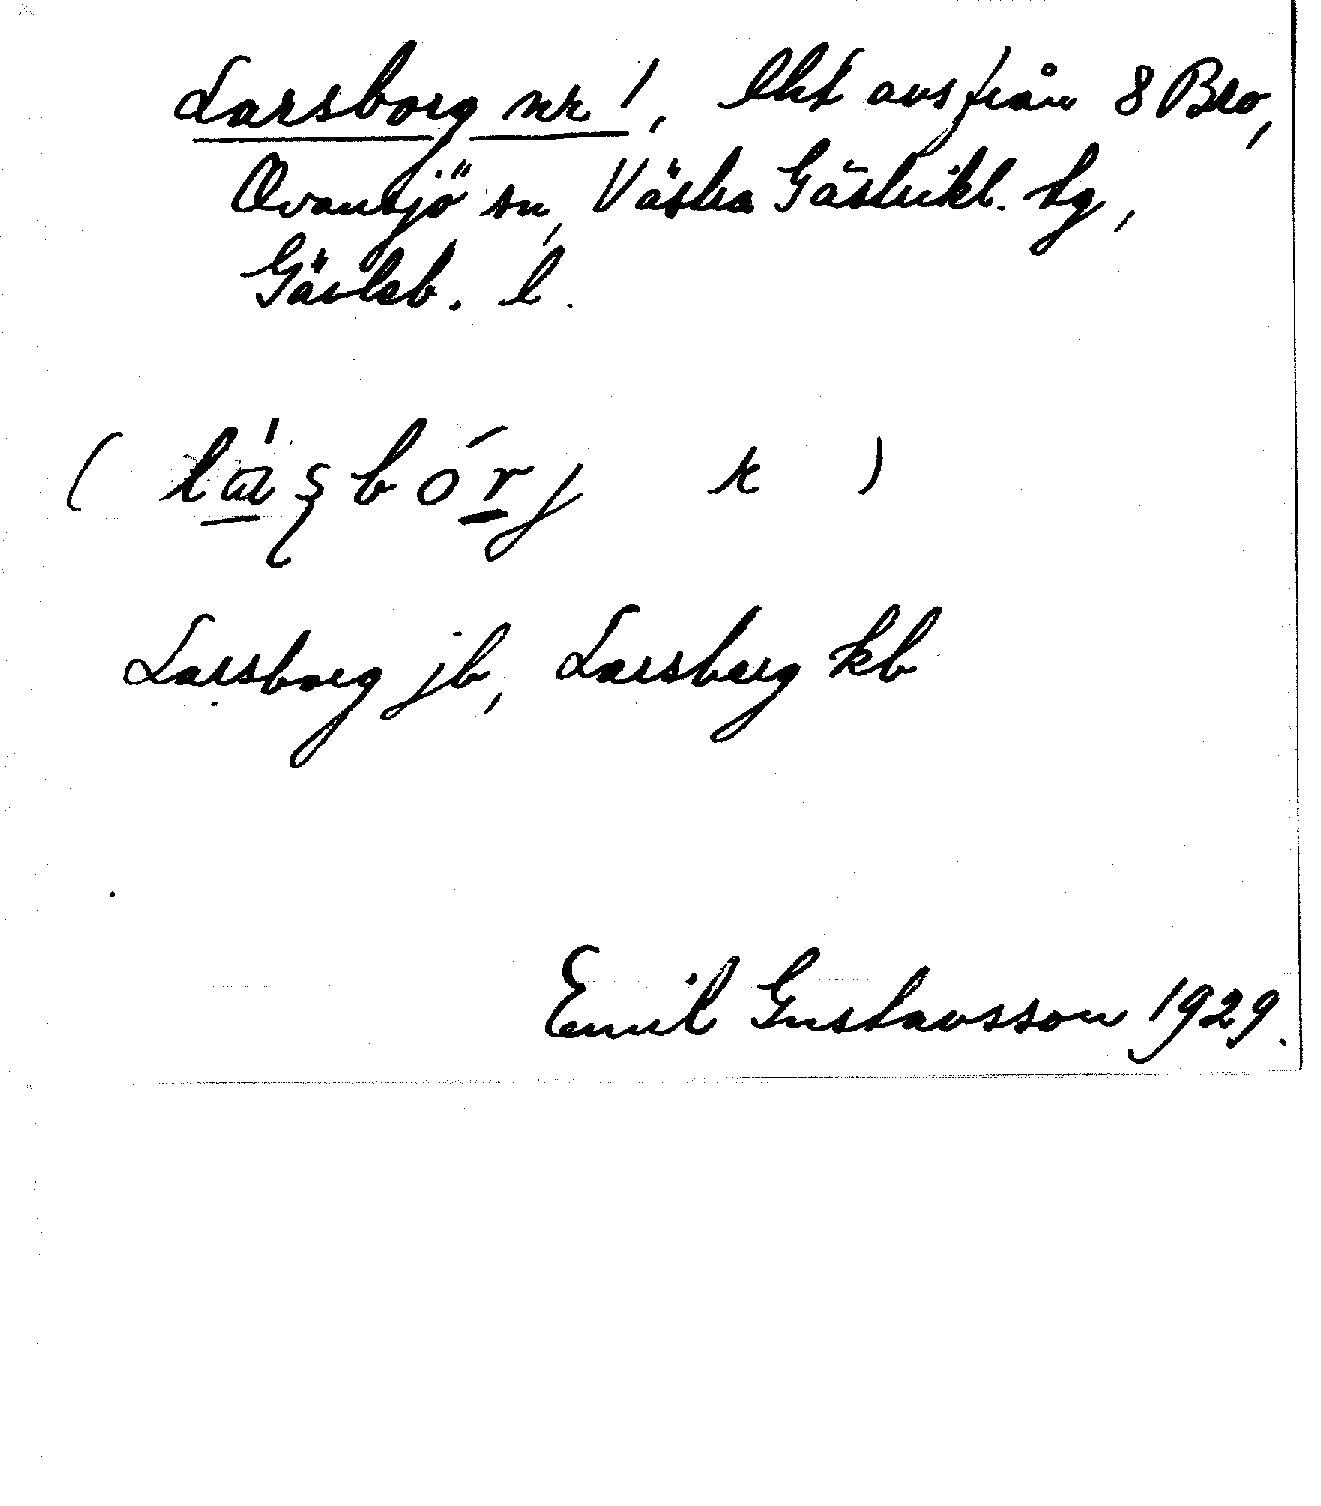 Larsborg nr 1, lht avs från 8 Bro,
Ovansjö sn, Västra Gästrikl. tg,
Gävleb. l.
( lɑ̀ʂbórj r )
Larsborg jb, Larsberg kb
Emil Gustavsson 1929.